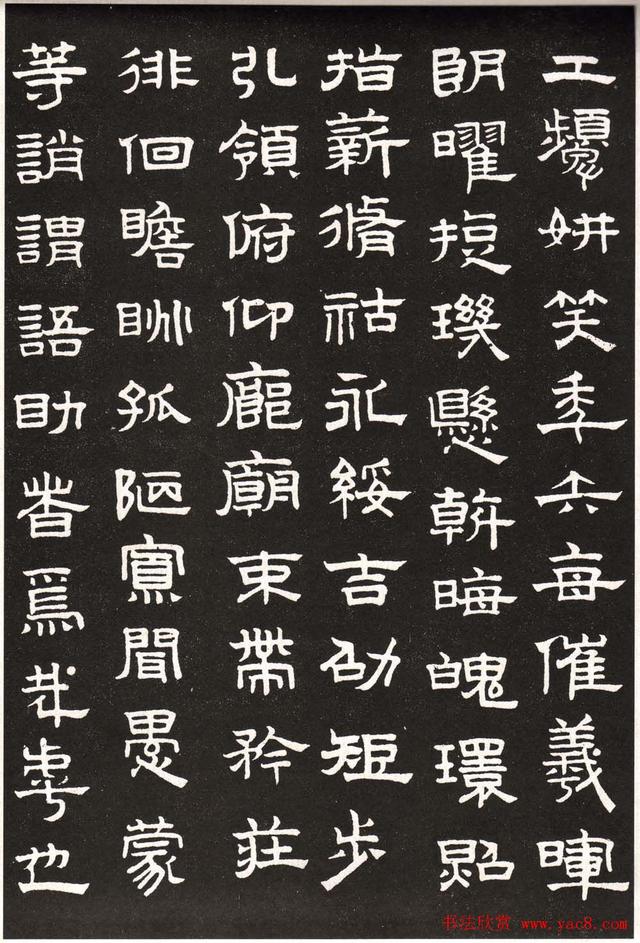 工顰妍笑年矢每催羲暉
朗曜旋璣懸斡晦魄環照
指薪脩祜永綏吉劭短步
引領俯仰廊廟束帶矜莊
徘徊瞻眺孤陋寡聞愚蒙
等誚謂語助者焉哉虖也
书法欣赏 www.yac8.com